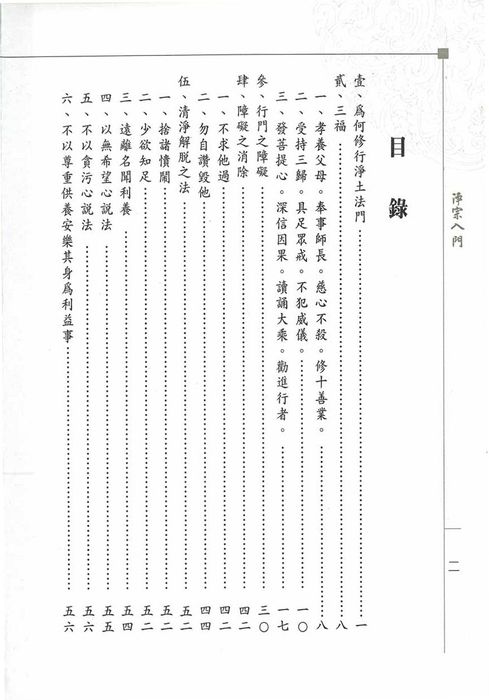 淨宗入門
二
目錄
壹、為何修行淨土法門……一
貳、三福……八
一、孝養父母。奉事師長。慈心不殺。修十善業。……八
二、受持三歸。具足眾戒。不犯威儀。……一〇
三、發菩提心。深信因果。讀誦大乘。勸進行者。……一七
參、行門之障礙……三〇
肆、障礙之消除……四二
一、不求他過……四二
二、勿自讚毀他……四四
伍、清淨解脫之法……五二
一、捨諸憒鬧……五二
二、少欲知足……五二
三、遠離名聞利養……五四
四、以無希望心說法……五五
五、不以貪污心說法……五六
六、不以尊重供養安樂其身為利益事……五六